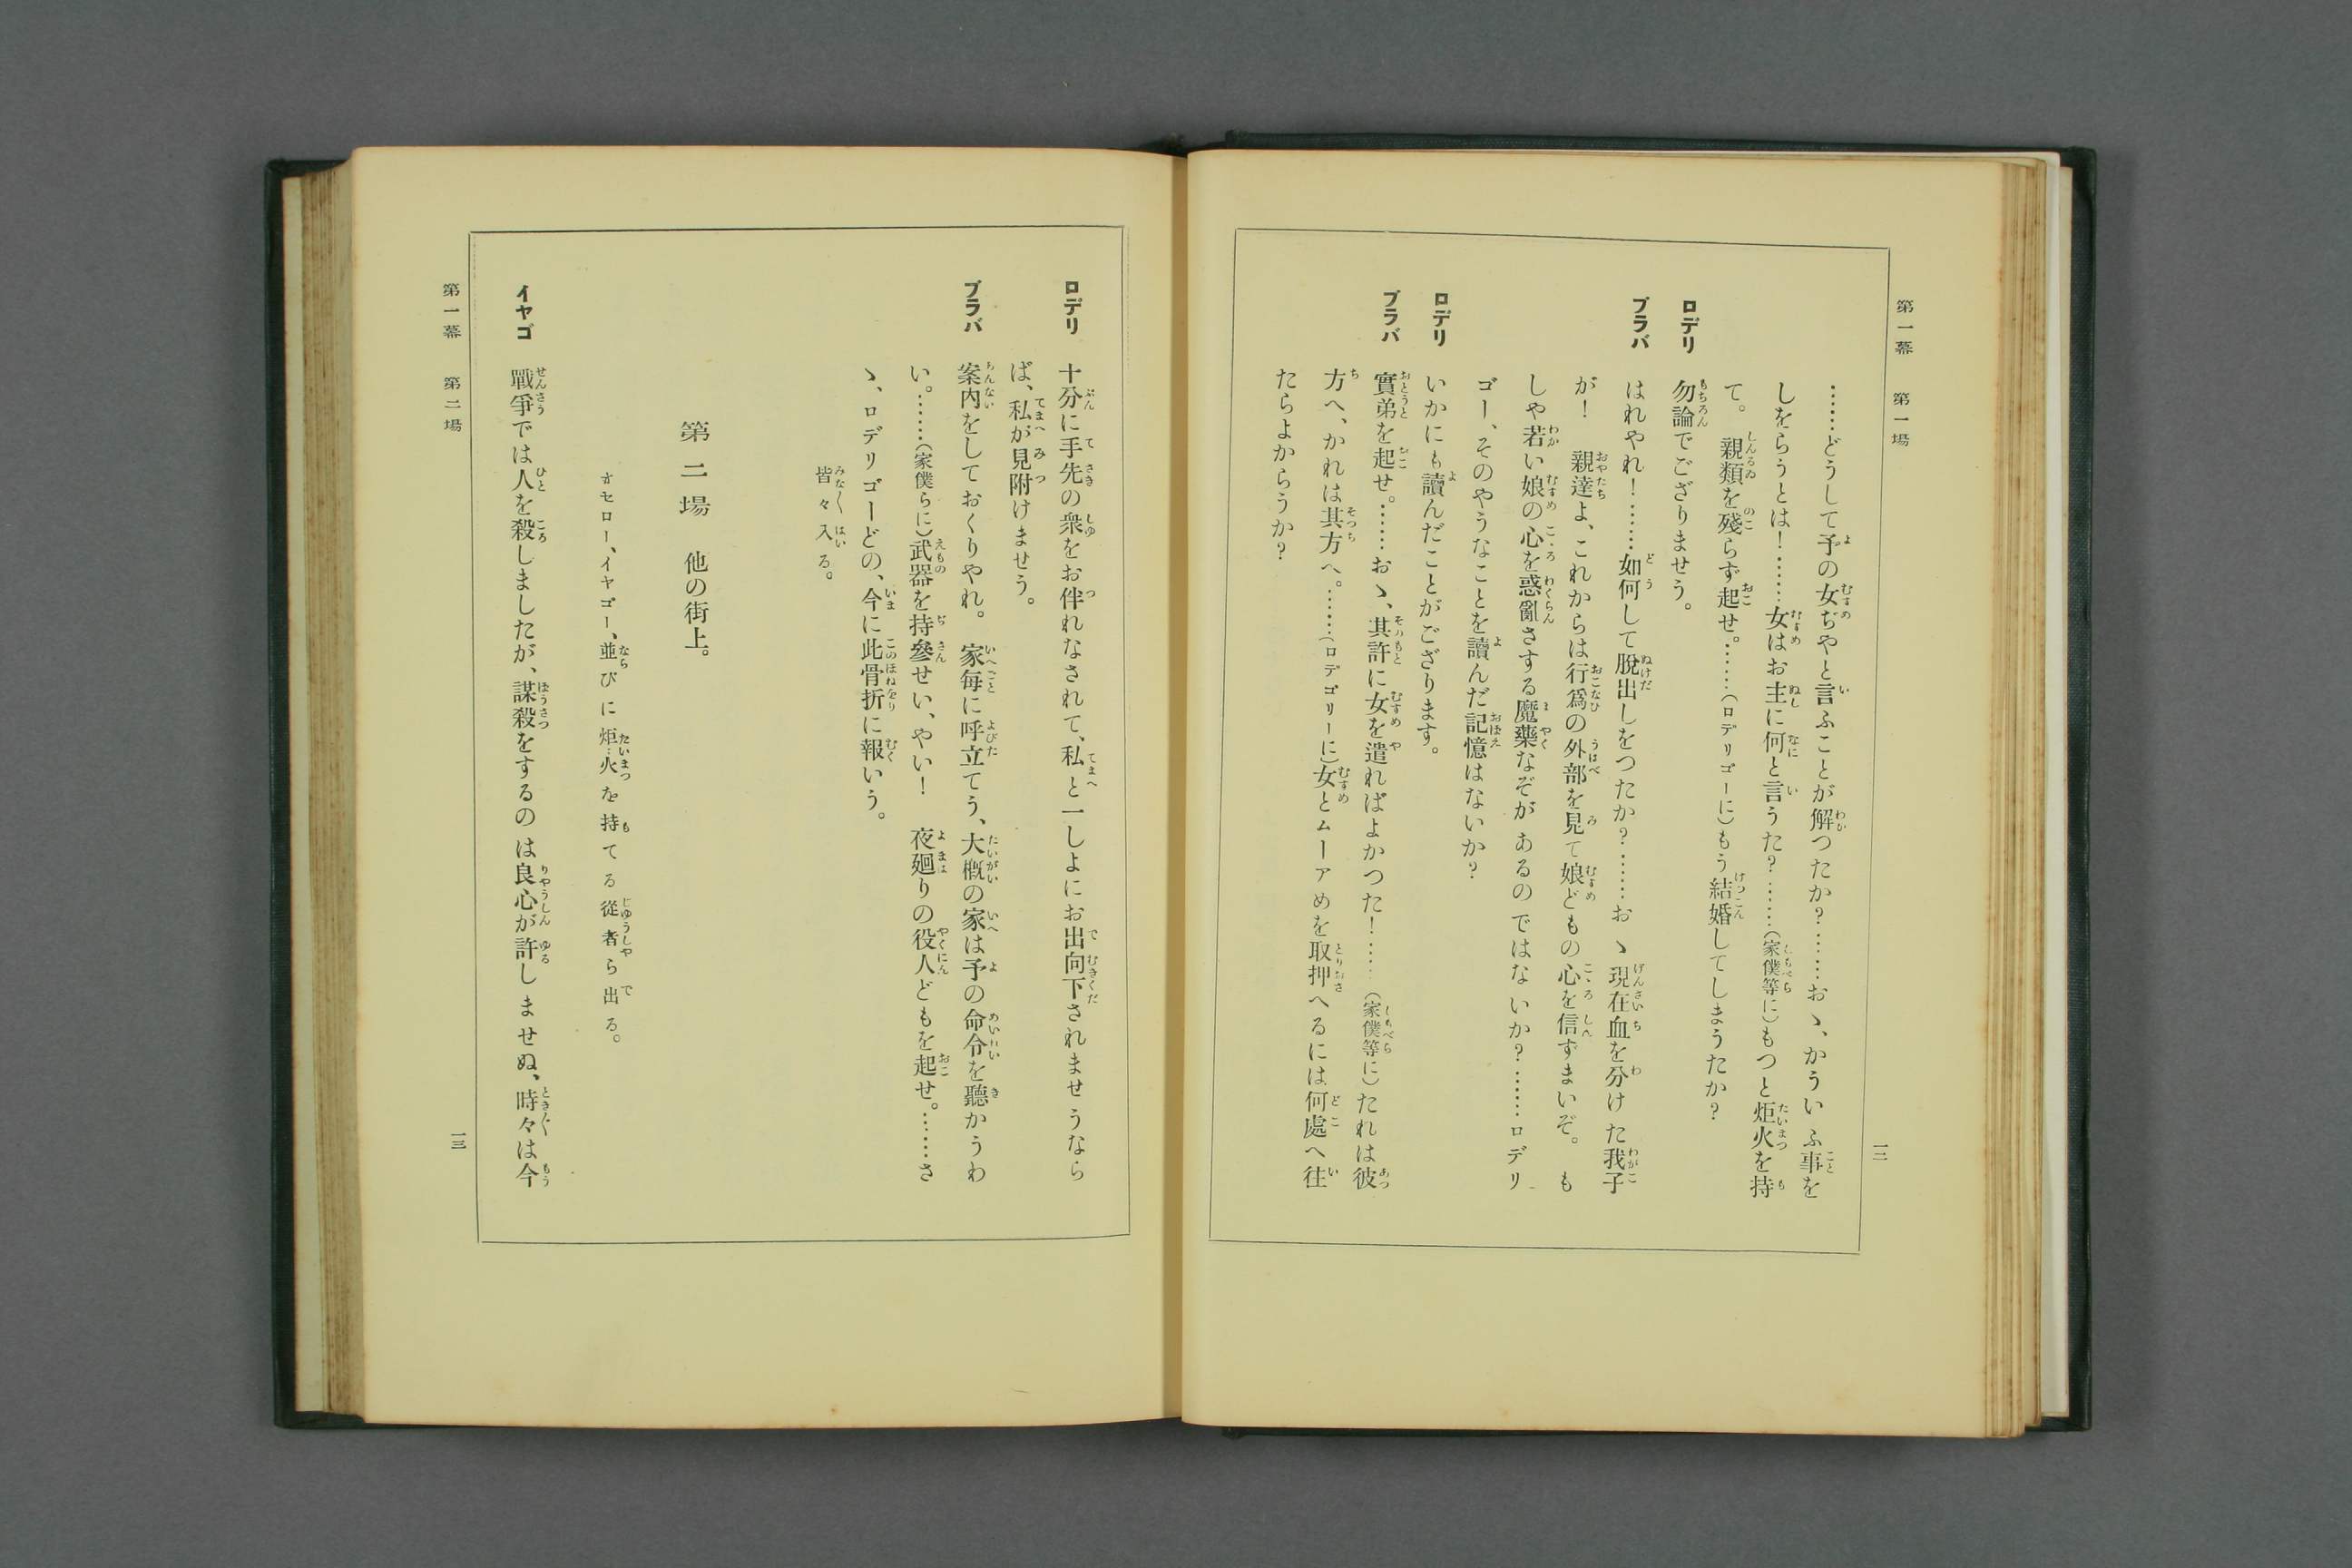 第一幕　第一場
……どうして予の女ぢやと言ふことが解つたか？……おゝ、かういふ事を
しをらうとは！……女はお主に何と言うた？……（家僕等に）もつと炬火を持
て。　親類を殘らず起せ。……（ロデリゴーに）もう結婚してしまうたか？
ロデリ　勿論でござりませう。
ブラバ　はれやれ！……如何して脫出しをつたか？……おゝ現在血を分けた我子
が！　親達よ、これからは行爲の外部を見て娘どもの心を信ずまいぞ。　も
しや若い娘の心を惑亂さする魔藥なぞがあるのではないか？……ロデリ
ゴー、そのやうなことを讀んだ記憶はないか？
ロデリ　いかにも讀んだことがござります。
ブラバ　實弟を起せ。……おゝ、其許に女を遣ればよかつた！……（家僕等に）たれは彼
方へ、かれは其方へ。……（ロデゴリーに）女とムーアめを取押へるには何處へ往
たらよからうか？
一二
ロデリ　十分に手先の衆をお伴れなされて、私と一しよにお出向下されませうなら
ば、私が見附けませう。
ブラバ　案内をしておくりやれ。　家每に呼立てう、大概の家は予の命令を聽かうわ
い。……（家僕らに）武器を持參せい、やい！　夜廻りの役人どもを起せ。……さ
ゝ、ロデリゴーどの、今に此骨折に報いう。
皆々入る。
第二場　他の街上。
オセロー、イヤゴー、並びに炬火を持てる從者ら出る。
イヤゴ　戰爭では人を殺しましたが、謀殺をするのは良心が許しませぬ、時々は今
第一幕　第二場
一三